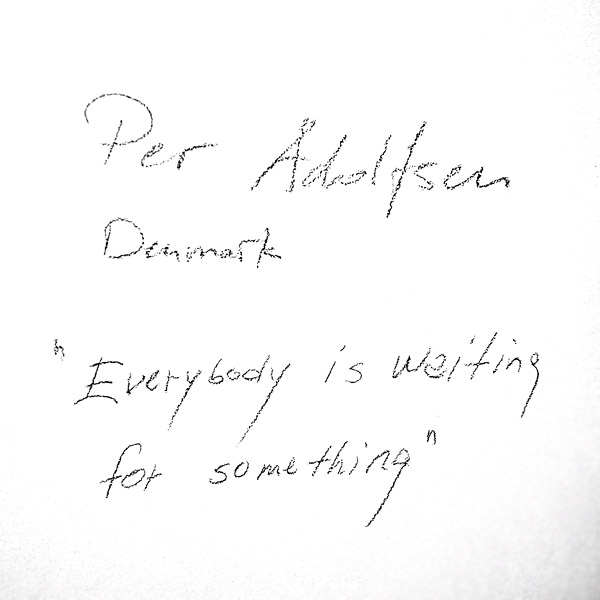 Per Ådolfsen
Denmark
"Everybody is waiting
for something"